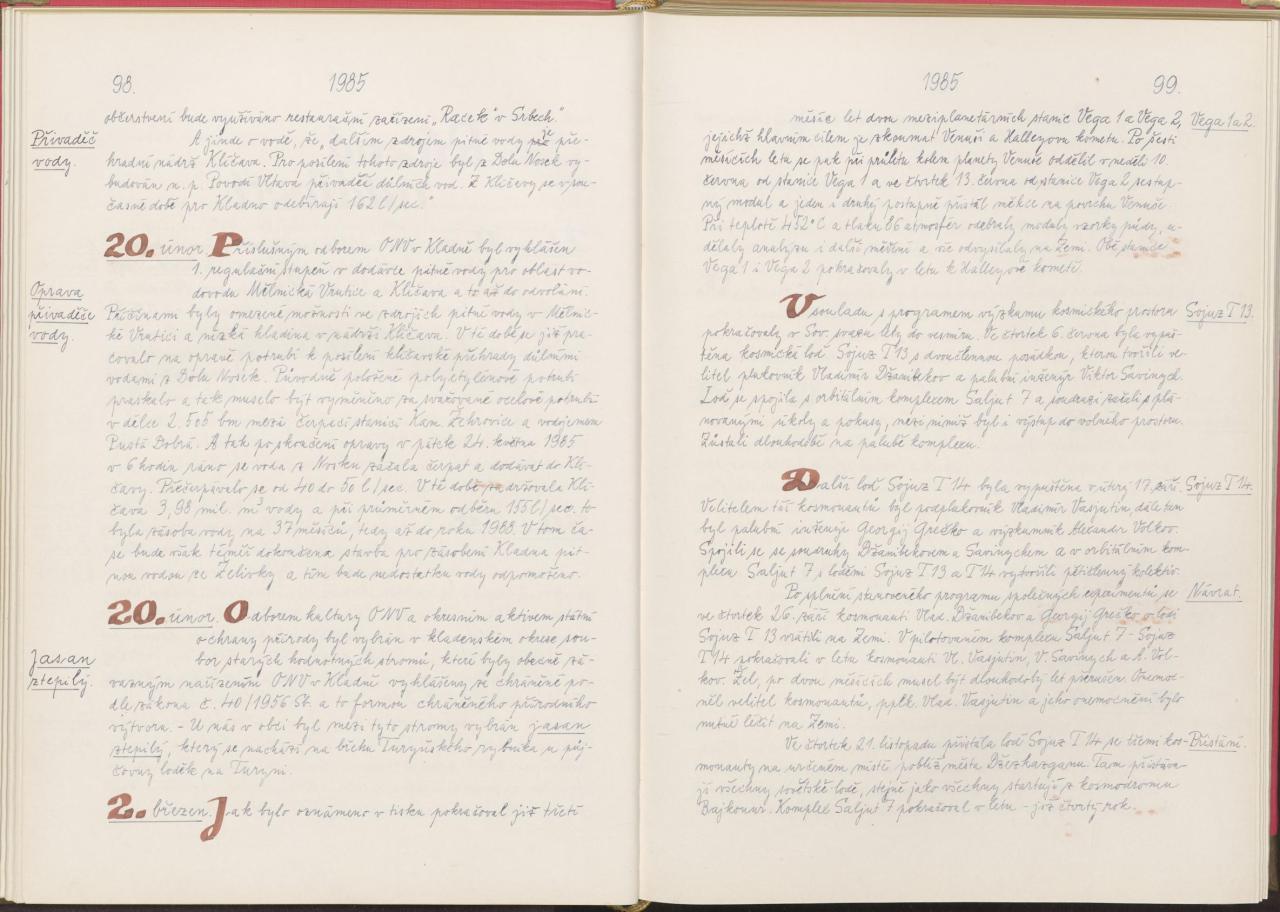 98.
1985
občerstvení bude využíváno restaurační zařízení „Raček" v Srbech."
Přivaděč
vody.
A jinde o vodě, že „dalším zdrojem pitné vody je pře-
hradní nádrž Klíčava. Pro posílení tohoto zdroje byl z Dolu Nosek vy-
budován n. p. Povodí Vltava přivaděč důlních vod. Z Klíčavy se v sou-
časné době pro Kladno odebírají 162 l/sec."
20. únor. Příslušným odborem ONV v Kladně byl vyhlášen
1. regulační stupeň v dodávce pitné vody pro oblast vo-
Oprava
přivaděče
vody.
dovodu Mělnická Vrutice a Klíčava a to až do odvolání.
Příčinami byly omezené možnosti ve zdrojích pitné vody v Mělnic-
ké Vrutici a nízká hladina v nádrži Klíčava. V té době se již pra-
covalo na opravě potrubí k posílení klíčavské přehrady důlními
vodami z Dolu Nosek. Původně položené polyetylénové potrubí
praskalo a tak muselo být vyměněno za svařované ocelové potrubí
v délce 2.505 bm mezi čerpací stanicí Kam. Žehrovice a vodojemem
Pustá Dobrá. A tak po skončení opravy v pátek 24. května 1985
v 6 hodin ráno se voda z Nosku začala čerpat a dodávat do Klí-
čavy. Přečerpávalo se od 40 do 50 l/sec. V té době zadržovala Klí-
čava 3,98 mil. m³ vody a při průměrném odběru 155 l/sec. to
byla zásoba vody na 37 měsíců, tedy až do roku 1988. V tom ča-
se bude však téměř dokončena stavba pro zásobení Kladna pit-
nou vodou ze Želivky a tím bude nedostatku vody odpomoženo.
20. únor. Odborem kultury ONV a okresním aktivem státní
ochrany přírody byl vybrán v kladenském okrese sou-
Jasan
ztepilý.
bor starých hodnotných stromů, které byly obecně zá-
vazným nařízením ONV v Kladně vyhlášeny ze chráněné po-
dle zákona č. 40/1956 Sb. a to formou chráněného přírodního
výtvoru. - U nás v obci byl mezi tyto stromy vybrán jasan
ztepilý, který se nachází na břehu Turyňského rybníka u půj-
čovny loděk na Turyni.
2. březen. Jak bylo oznámeno v tisku pokračoval již třetí
1985
99.
měsíc let dvou meziplanetárních stanic Vega 1 a Vega 2,
Vega 1 a 2.
jejichž hlavním cílem je zkoumat Venuši a Halleyovu kometu. Po šesti
měsících letu se pak při průletu kolem planety Venuše oddělil v neděli 10.
června od stanice Vega 1 a ve čtvrtek 13. června od stanice Vega 2 sestup-
ný modul a jeden i druhý postupně přistál měkce na povrchu Venuše.
Při teplotě 452°C a tlaku 86 atmosfér odebraly moduly vzorky půdy, u-
dělaly analýzu i další měření a vše odvysílaly na Zemi. Obě stanice
Vega 1 i Vega 2 pokračovaly v letu k Halleyově kometě.
V souladu s programem výzkumu kosmického prostoru
Sojuz T 13.
pokračovaly v Sov. svazu lety do vesmíru. Ve čtvrtek 6. června byla vypuš-
těna kosmická loď Sojuz T 13 s dvoučlennou posádkou, kterou tvořili ve-
litel plukovník Vladimír Džanibekov a palubní inženýr Viktor Savinych.
Loď se spojila s orbitálním komplexem Saljut 7 a soudruzi začali s plá-
novanými úkoly a pokusy, mezi nimiž byl i výstup do volného prostoru.
Zůstali dlouhodobě na palubě komplexu.
Další loď Sojuz T 14 byla vypuštěna v úterý 17. září.
Sojuz T 14.
Velitelem tří kosmonautů byl podplukovník Vladimír Vasjutin, dále tam
byl palubní inženýr Georgij Grečko a výzkumník Alexandr Volkov.
Spojili se se soudruhy Džanibekovem a Savinychem a v orbitálním kom-
plexu Saljut 7 s loděmi Sojuz T 13 a T 14 vytvořili pětičlenný kolektiv.
Po splnění stanoveného programu společných experimentů se
Návrat.
ve čtvrtek 26. září kosmonauti Vlad. Džanibekov a Georgij Grečko v lodi
Sojuz T 13 vrátili na Zemi. V pilotovaném komplexu Saljut 7 - Sojuz
T 14 pokračovali v letu kosmonauti Vl. Vasjutin, V. Savinych a A. Vol-
kov. Žel, po dvou měsících musel být dlouhodobý let přerušen. Onemoc-
něl velitel kosmonautů, pplk. Vlad. Vasjutin a jeho onemocnění bylo
nutné léčit na Zemi.
Ve čtvrtek 21. listopadu přistála loď Sojuz T 14 se třemi kos-
Přistání.
monauty na určeném místě poblíž města Džezkazganu. Tam přistáva-
jí všechny sovětské lodě, stejně jako všechny startují z kosmodromu
Bajkonur. Komplex Saljut 7 pokračoval v letu - již čtvrtý rok.